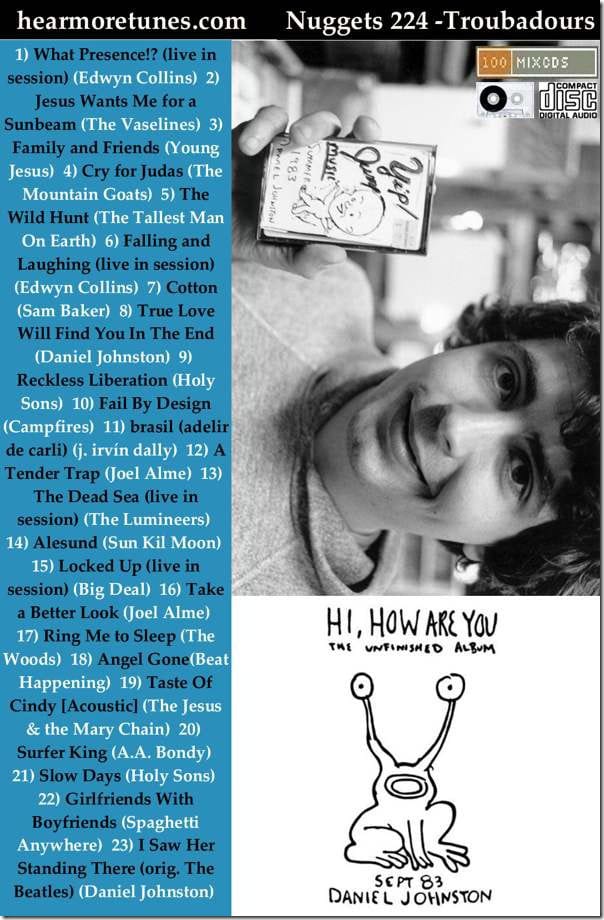 hearmoretunes.com Nuggets 224 -Troubadours
1) What Presence!? (live in
session) (Edwyn Collins) 2)
Jesus Wants Me for a
Sunbeam (The Vaselines) 3)
Family and Friends (Young
Jesus) 4) Cry for Judas (The
Mountain Goats) 5) The
Wild Hunt (The Tallest Man
On Earth) 6) Falling and
Laughing (live in session)
(Edwyn Collins) 7) Cotton
(Sam Baker) 8) True Love
Will Find You In The End
(Daniel Johnston) 9)
Reckless Liberation (Holy
Sons) 10) Fail By Design
(Campfires) 11) brasil (adelir
de carli) (j. irvín dally) 12) A
Tender Trap (Joel Alme) 13)
The Dead Sea (live in
session) (The Lumineers)
14) Alesund (Sun Kil Moon)
15) Locked Up (live in
session) (Big Deal) 16) Take
a Better Look (Joel Alme)
17) Ring Me to Sleep (The
Woods) 18) Angel Gone(Beat
Happening) 19) Taste Of
Cindy [Acoustic] (The Jesus
& the Mary Chain) 20)
Surfer King (A.A. Bondy)
21) Slow Days (Holy Sons)
22) Girlfriends With
Boyfriends (Spaghetti
Anywhere) 23) I Saw Her
Standing There (orig. The
Beatles) (Daniel Johnston)
100 MIXCDS
COMPACT
disc
DIGITAL AUDIO
Yip/
Jump
music
SUMMER
1983
DANIEL JOHNSTON
HI, HOW ARE YOU
THE UNFINISHED ALBUM
SEPT 83
DANIEL JOHNSTON